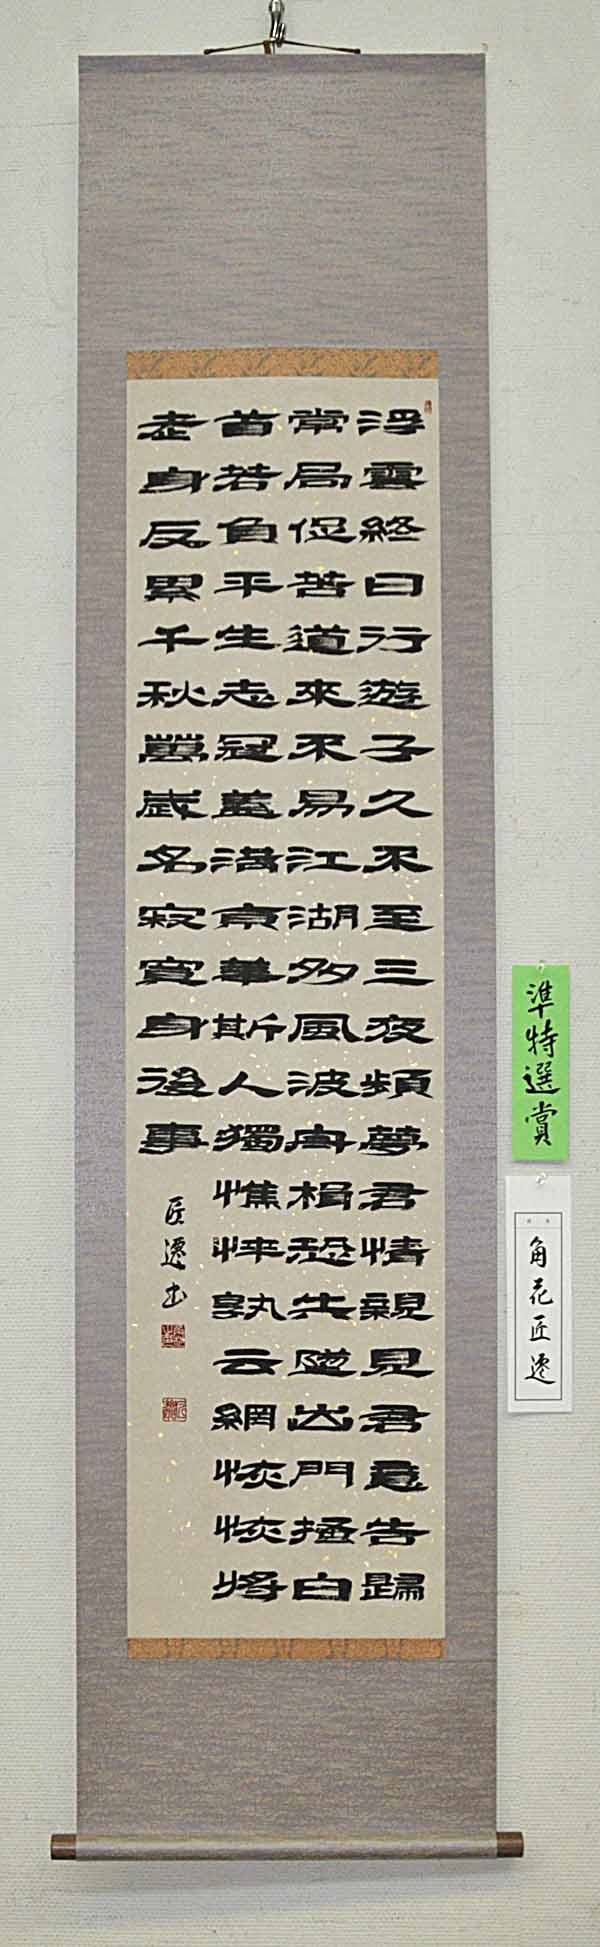 浮雲終日行遊子久不至三夜頻夢君情親見君意告歸
常局促苦道來不易江湖多風波舟楫恐失墜出門搔白
首若負平生志冠蓋滿京華斯人獨憔悴孰云網恢恢將
老身反累千秋萬歲名寂寞身後事
匠遷書
準特選賞
角花匠遷